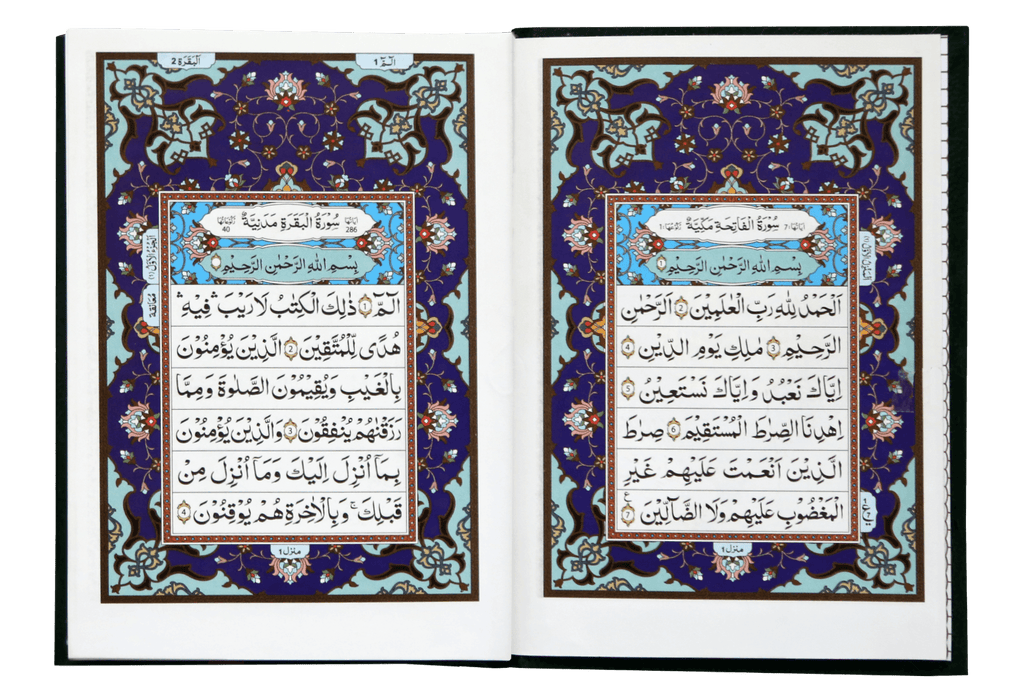 سُوْرَةُ الْفَاتِحَةِ مَكِّيَّةٌ
اٰيَاتُهَا 7
رُكُوْعُهَا 1
بِسْمِ اللهِ الرَّحْمٰنِ الرَّحِيْمِ 1
اَلْحَمْدُ لِلّٰهِ رَبِّ الْعٰلَمِيْنَ 2 الرَّحْمٰنِ
الرَّحِيْمِ 3 مٰلِكِ يَوْمِ الدِّيْنِ 4
اِيَّاكَ نَعْبُدُ وَاِيَّاكَ نَسْتَعِيْنُ 5
اِهْدِنَا الصِّرَاطَ الْمُسْتَقِيْمَ 6 صِرَاطَ
الَّذِيْنَ اَنْعَمْتَ عَلَيْهِمْ غَيْرِ
الْمَغْضُوْبِ عَلَيْهِمْ وَلَا الضَّآلِّيْنَ 7
منزل ١
الٓمّٓ 1
اَلْبَقَرَة 2
سُوْرَةُ الْبَقَرَةِ مَدَنِيَّةٌ
اٰيَاتُهَا 286
رُكُوْعَاتُهَا 40
بِسْمِ اللهِ الرَّحْمٰنِ الرَّحِيْمِ
الٓمّٓ 1 ذٰلِكَ الْكِتٰبُ لَا رَيْبَ ۛ فِيْهِ ۛ
هُدًى لِّلْمُتَّقِيْنَ 2 الَّذِيْنَ يُؤْمِنُوْنَ
بِالْغَيْبِ وَيُقِيْمُوْنَ الصَّلٰوةَ وَمِمَّا
رَزَقْنٰهُمْ يُنْفِقُوْنَ 3 وَالَّذِيْنَ يُؤْمِنُوْنَ
بِمَآ اُنْزِلَ اِلَيْكَ وَمَآ اُنْزِلَ مِنْ
قَبْلِكَ ۚ وَبِالْاٰخِرَةِ هُمْ يُوْقِنُوْنَ 4
معانقة
منزل ١